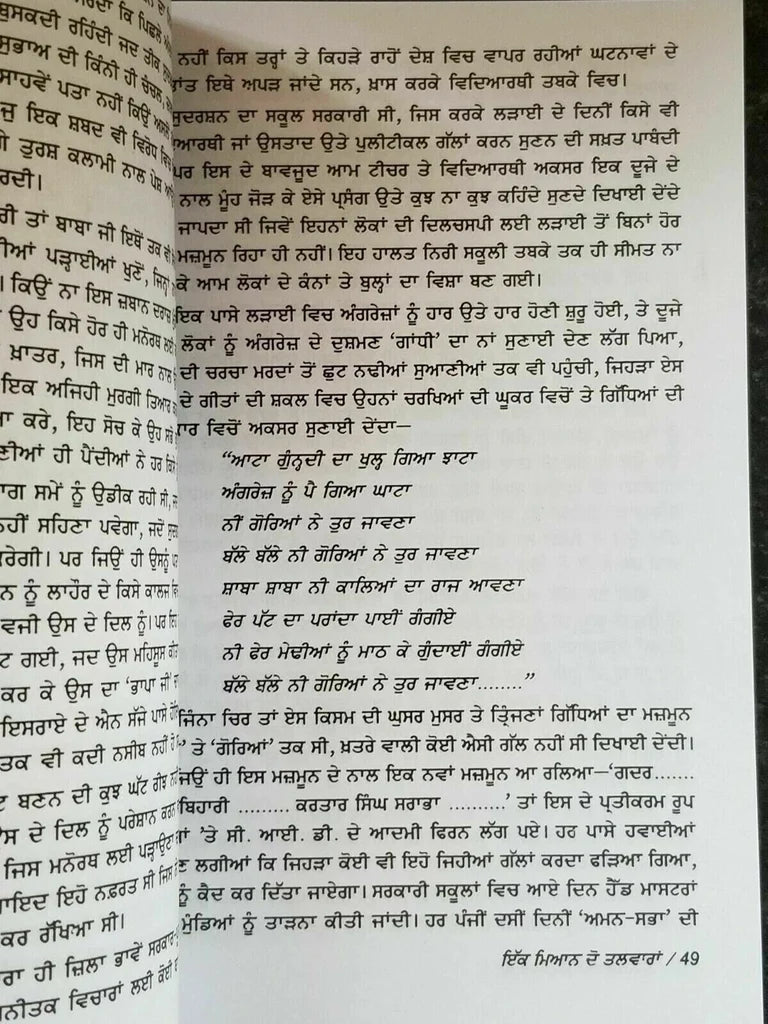 ਦਾ ਕਿ ਪਿਛਲੇ
ਬੁਸਕਦੀ ਰਹਿੰਦੀ ਜਦ ਠੀਕ
ਸੁਭਾਅ ਦੀ ਕਿੰਨੀ ਹੀ ਚੰਚਲ,
ਸਾਹਵੇਂ ਪਤਾ ਨਹੀਂ ਕਿਉਂ
ਜੁ ਇਕ ਸ਼ਬਦ ਵੀ ਵਿਰੋਧ ਵਿਚ
ਤੁਰਸ਼ ਕਲਾਮੀ ਨਾਲ ਪੇਸ਼
ਰਦੀ।
ਰੀ ਤਾਂ ਬਾਬਾ ਜੀ ਇਥੋਂ ਤਕ ਵੀ
ਪੜ੍ਹਾਈਆਂ ਖੁਣੋਂ, ਜਿਨ੍ਹਾਂ
। ਕਿਉਂ ਨਾ ਇਸ ਜ਼ਬਾਨ
ਉਹ ਕਿਸੇ ਹੋਰ ਹੀ ਮਨੋਰਥ ਲਈ
ਖ਼ਾਤਰ, ਜਿਸ ਦੀ ਮਾਰ ਨਾਲ
ਇਕ ਅਜਿਹੀ ਮੁਰਗੀ ਤਿਆਰ
ਕਰੇ, ਇਹ ਸੋਚ ਕੇ ਉਹ ਸਭ
ਣੀਆਂ ਹੀ ਪੈਂਦੀਆਂ ਨੇ ਹਰ ਕਿਸੇ
ਗ ਸਮੇਂ ਨੂੰ ਉਡੀਕ ਰਹੀ ਸੀ,
ਨਹੀਂ ਸਹਿਣਾ ਪਵੇਗਾ, ਜਦੋਂ
ਰੇਗੀ। ਪਰ ਜਿਉਂ ਹੀ ਉਸਨੂੰ
ਨ ਨੂੰ ਲਾਹੌਰ ਦੇ ਕਿਸੇ ਕਾਲਜ
ਵਜੀ ਉਸ ਦੇ ਦਿਲ ਨੂੰ। ਪਰ
ਟ ਗਈ, ਜਦ ਉਸ ਮਹਿਸੂਸ ਕੀਤਾ
ਕਰ ਕੇ ਉਸ ਦਾ 'ਭਾਪਾ ਜੀ'
ਇਸਰਾਏ ਦੇ ਐਨ ਸੱਜੇ ਪਾਸੇ
ਤਕ ਵੀ ਕਦੀ ਨਸੀਬ ਨਹੀਂ
ਬਣਨ ਦੀ ਕੁਝ ਘੱਟ ਰੀਝ
ਸ ਦੇ ਦਿਲ ਨੂੰ ਪਰੇਸ਼ਾਨ ਕਰਨ
ਜਿਸ ਮਨੋਰਥ ਲਈ ਪੜ੍ਹਾਉਣਾ
ਾਇਦ ਇਹੋ ਨਫ਼ਰਤ ਸੀ ਜਿਸ
ਕਰ ਰੱਖਿਆ ਸੀ।
ਰਾ ਹੀ ਜ਼ਿਲਾ ਭਾਵੇਂ ਸਰਕਾਰ-
ਨੀਤਕ ਵਿਚਾਰਾਂ ਲਈ ਕੋਈ
ਨਹੀਂ ਕਿਸ ਤਰ੍ਹਾਂ ਤੇ ਕਿਹੜੇ ਰਾਹੋਂ ਦੇਸ਼ ਵਿਚ ਵਾਪਰ ਰਹੀਆਂ ਘਟਨਾਵਾਂ ਦੇ
ਾਂਤ ਇਥੇ ਅਪੜ ਜਾਂਦੇ ਸਨ, ਖ਼ਾਸ ਕਰਕੇ ਵਿਦਿਆਰਥੀ ਤਬਕੇ ਵਿਚ।
ਸੁਦਰਸ਼ਨ ਦਾ ਸਕੂਲ ਸਰਕਾਰੀ ਸੀ, ਜਿਸ ਕਰਕੇ ਲੜਾਈ ਦੇ ਦਿਨੀਂ ਕਿਸੇ ਵੀ
ਆਰਥੀ ਜਾਂ ਉਸਤਾਦ ਉਤੇ ਪੁਲੀਟੀਕਲ ਗੱਲਾਂ ਕਰਨ ਸੁਣਨ ਦੀ ਸਖ਼ਤ ਪਾਬੰਦੀ
ਪਰ ਇਸ ਦੇ ਬਾਵਜੂਦ ਆਮ ਟੀਚਰ ਤੇ ਵਿਦਿਆਰਥੀ ਅਕਸਰ ਇਕ ਦੂਜੇ ਦੇ
ਨਾਲ ਮੂੰਹ ਜੋੜ ਕੇ ਏਸੇ ਪ੍ਰਸੰਗ ਉਤੇ ਕੁਝ ਨਾ ਕੁਝ ਕਹਿੰਦੇ ਸੁਣਦੇ ਦਿਖਾਈ ਦੇਂਦੇ
ਜਾਪਦਾ ਸੀ ਜਿਵੇਂ ਇਹਨਾਂ ਲੋਕਾਂ ਦੀ ਦਿਲਚਸਪੀ ਲਈ ਲੜਾਈ ਤੋਂ ਬਿਨਾਂ ਹੋਰ
ਮਜ਼ਮੂਨ ਰਿਹਾ ਹੀ ਨਹੀਂ। ਇਹ ਹਾਲਤ ਨਿਰੀ ਸਕੂਲੀ ਤਬਕੇ ਤਕ ਹੀ ਸੀਮਤ ਨਾ
ਕੇ ਆਮ ਲੋਕਾਂ ਦੇ ਕੰਨਾਂ ਤੇ ਬੁਲ੍ਹਾਂ ਦਾ ਵਿਸ਼ਾ ਬਣ ਗਈ।
ਇਕ ਪਾਸੇ ਲੜਾਈ ਵਿਚ ਅੰਗਰੇਜ਼ਾਂ ਨੂੰ ਹਾਰ ਉਤੇ ਹਾਰ ਹੋਣੀ ਸ਼ੁਰੂ ਹੋਈ, ਤੇ ਦੂਜੇ
ਲੋਕਾਂ ਨੂੰ ਅੰਗਰੇਜ਼ ਦੇ ਦੁਸ਼ਮਣ 'ਗਾਂਧੀ' ਦਾ ਨਾਂ ਸੁਣਾਈ ਦੇਣ ਲੱਗ ਪਿਆ,
ਦੀ ਚਰਚਾ ਮਰਦਾਂ ਤੋਂ ਛੁਟ ਨਢੀਆਂ ਸੁਆਣੀਆਂ ਤਕ ਵੀ ਪਹੁੰਚੀ, ਜਿਹੜਾ ਏਸ
ਦੇ ਗੀਤਾਂ ਦੀ ਸ਼ਕਲ ਵਿਚ ਉਹਨਾਂ ਚਰਖਿਆਂ ਦੀ ਘੂਕਰ ਵਿਚੋਂ ਤੇ ਗਿੱਧਿਆਂ ਦੀ
ਾਰ ਵਿਚੋਂ ਅਕਸਰ ਸੁਣਾਈ ਦੇਂਦਾ—
"ਆਟਾ ਗੁੰਨ੍ਹਦੀ ਦਾ ਖੁਲ੍ਹ ਗਿਆ ਝਾਟਾ
ਅੰਗਰੇਜ਼ ਨੂੰ ਪੈ ਗਿਆ ਘਾਟਾ
ਨੀਂ ਗੋਰਿਆਂ ਨੇ ਤੁਰ ਜਾਵਣਾ
ਬੱਲੇ ਬੱਲੇ ਨੀ ਗੋਰਿਆਂ ਨੇ ਤੁਰ ਜਾਵਣਾ
ਸ਼ਾਬਾ ਸ਼ਾਬਾ ਨੀ ਕਾਲਿਆਂ ਦਾ ਰਾਜ ਆਵਣਾ
ਫੇਰ ਪੱਟ ਦਾ ਪਰਾਂਦਾ ਪਾਈਂ ਗੰਗੀਏ
ਨੀ ਫੇਰ ਮੇਢੀਆਂ ਨੂੰ ਮਾਠ ਕੇ ਗੁੰਦਾਈਂ ਗੰਗੀਏ
ਬੱਲੇ ਬੱਲੇ ਨੀ ਗੋਰਿਆਂ ਨੇ ਤੁਰ ਜਾਵਣਾ........"
ਜਿੰਨਾ ਚਿਰ ਤਾਂ ਏਸ ਕਿਸਮ ਦੀ ਘੁਸਰ ਮੁਸਰ ਤੇ ਤ੍ਰਿੰਜਣਾਂ ਗਿੱਧਿਆਂ ਦਾ ਮਜ਼ਮੂਨ
' ਤੇ 'ਗੋਰਿਆਂ' ਤਕ ਸੀ, ਖ਼ਤਰੇ ਵਾਲੀ ਕੋਈ ਐਸੀ ਗੱਲ ਨਹੀਂ ਸੀ ਦਿਖਾਈ ਦੇਂਦੀ।
ਜਿਉਂ ਹੀ ਇਸ ਮਜ਼ਮੂਨ ਦੇ ਨਾਲ ਇਕ ਨਵਾਂ ਮਜ਼ਮੂਨ ਆ ਰਲਿਆ—'ਗਦਰ.......
ਬਿਹਾਰੀ ......... ਕਰਤਾਰ ਸਿੰਘ ਸਰਾਭਾ ..........' ਤਾਂ ਇਸ ਦੇ ਪ੍ਰਤੀਕਰਮ ਰੂਪ
ਾਂ 'ਤੇ ਸੀ. ਆਈ. ਡੀ. ਦੇ ਆਦਮੀ ਫਿਰਨ ਲੱਗ ਪਏ। ਹਰ ਪਾਸੇ ਹਵਾਈਆਂ
ਣ ਲਗੀਆਂ ਕਿ ਜਿਹੜਾ ਕੋਈ ਵੀ ਇਹੋ ਜਿਹੀਆਂ ਗੱਲਾਂ ਕਰਦਾ ਫੜਿਆ ਗਿਆ,
ਨੂੰ ਕੈਦ ਕਰ ਦਿੱਤਾ ਜਾਏਗਾ। ਸਰਕਾਰੀ ਸਕੂਲਾਂ ਵਿਚ ਆਏ ਦਿਨ ਹੈੱਡ ਮਾਸਟਰਾਂ
ਮੁੰਡਿਆਂ ਨੂੰ ਤਾੜਨਾ ਕੀਤੀ ਜਾਂਦੀ। ਹਰ ਪੰਜੀਂ ਦਸੀਂ ਦਿਨੀਂ 'ਅਮਨ-ਸਭਾ' ਦੀ
ਇੱਕ ਮਿਆਨ ਦੋ ਤਲਵਾਰਾਂ / 49